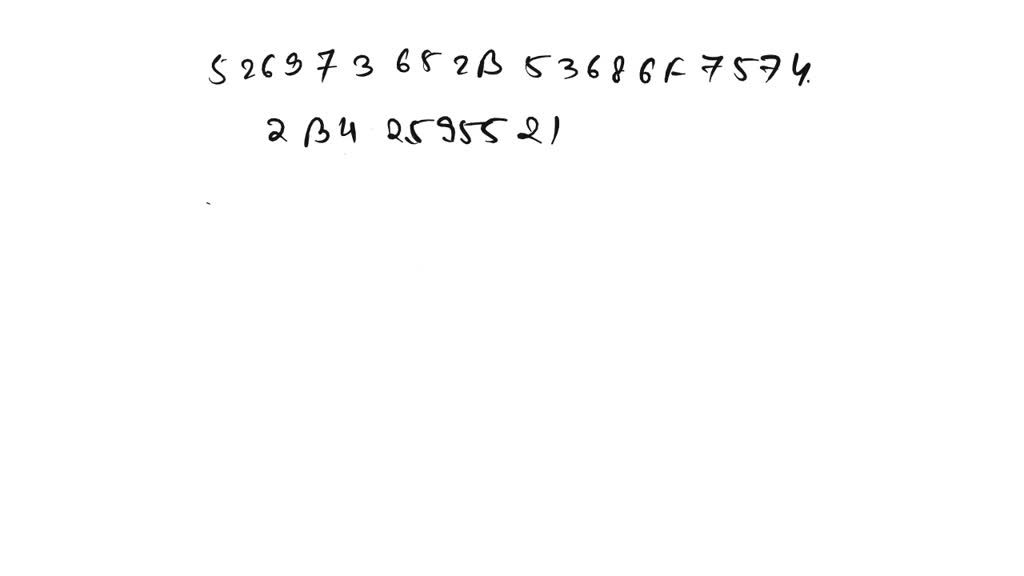 526973652B53686F7574
2B42595521